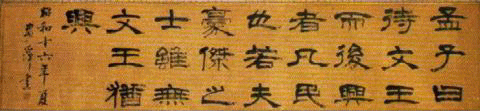 孟子曰
待文王
而後興
者凡民
也若夫
豪傑之
士雖無
文王猶
興
昭和十六年夏
書